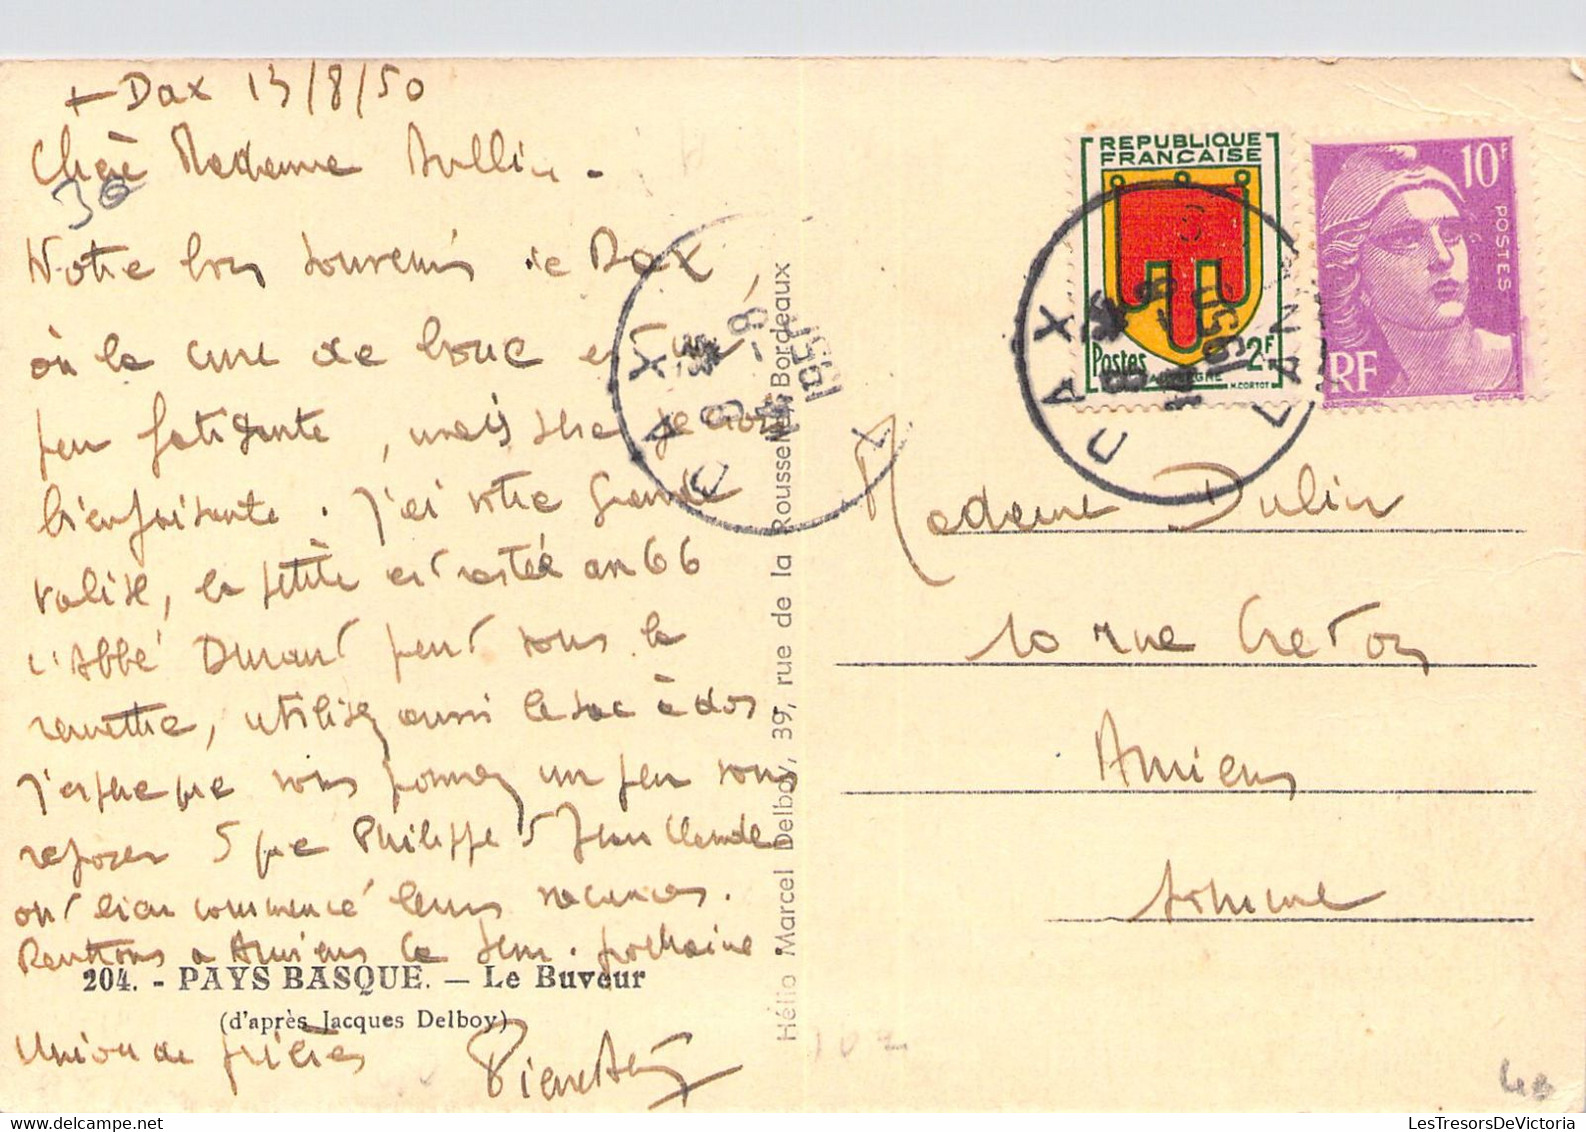 + Dax 13/8/50
Chère Madame Dullin.
30
Notre bon souvenir de Dax,
où la cure de boue est un
peu fatigante, mais sera je crois
bienfaisante. J'ai votre grande
valise, la petite est restée au 66
l'Abbé Durant peut vous la
remettre, utilisez aussi le sac à dos
J'espère que vous pouvez un peu vous
reposer & que Philippe & Jean Claude
ont bien commencé leurs vacances.
Rentrons à Amiens la sem. prochaine.
204. - PAYS BASQUE. — Le Buveur
(d'après Jacques Delboy)
Union de prières
Hélio Marcel Delboy, 39, rue de la Rousselle, Bordeaux
REPUBLIQUE
FRANÇAISE
Postes 2F
H. CORTOT
10F
POSTES
RF
DAX
LANDES
1950
DAX
1950
Madame Dulin
10 rue Creton
Amiens
Somme
102
LesTresorsDeVictoria